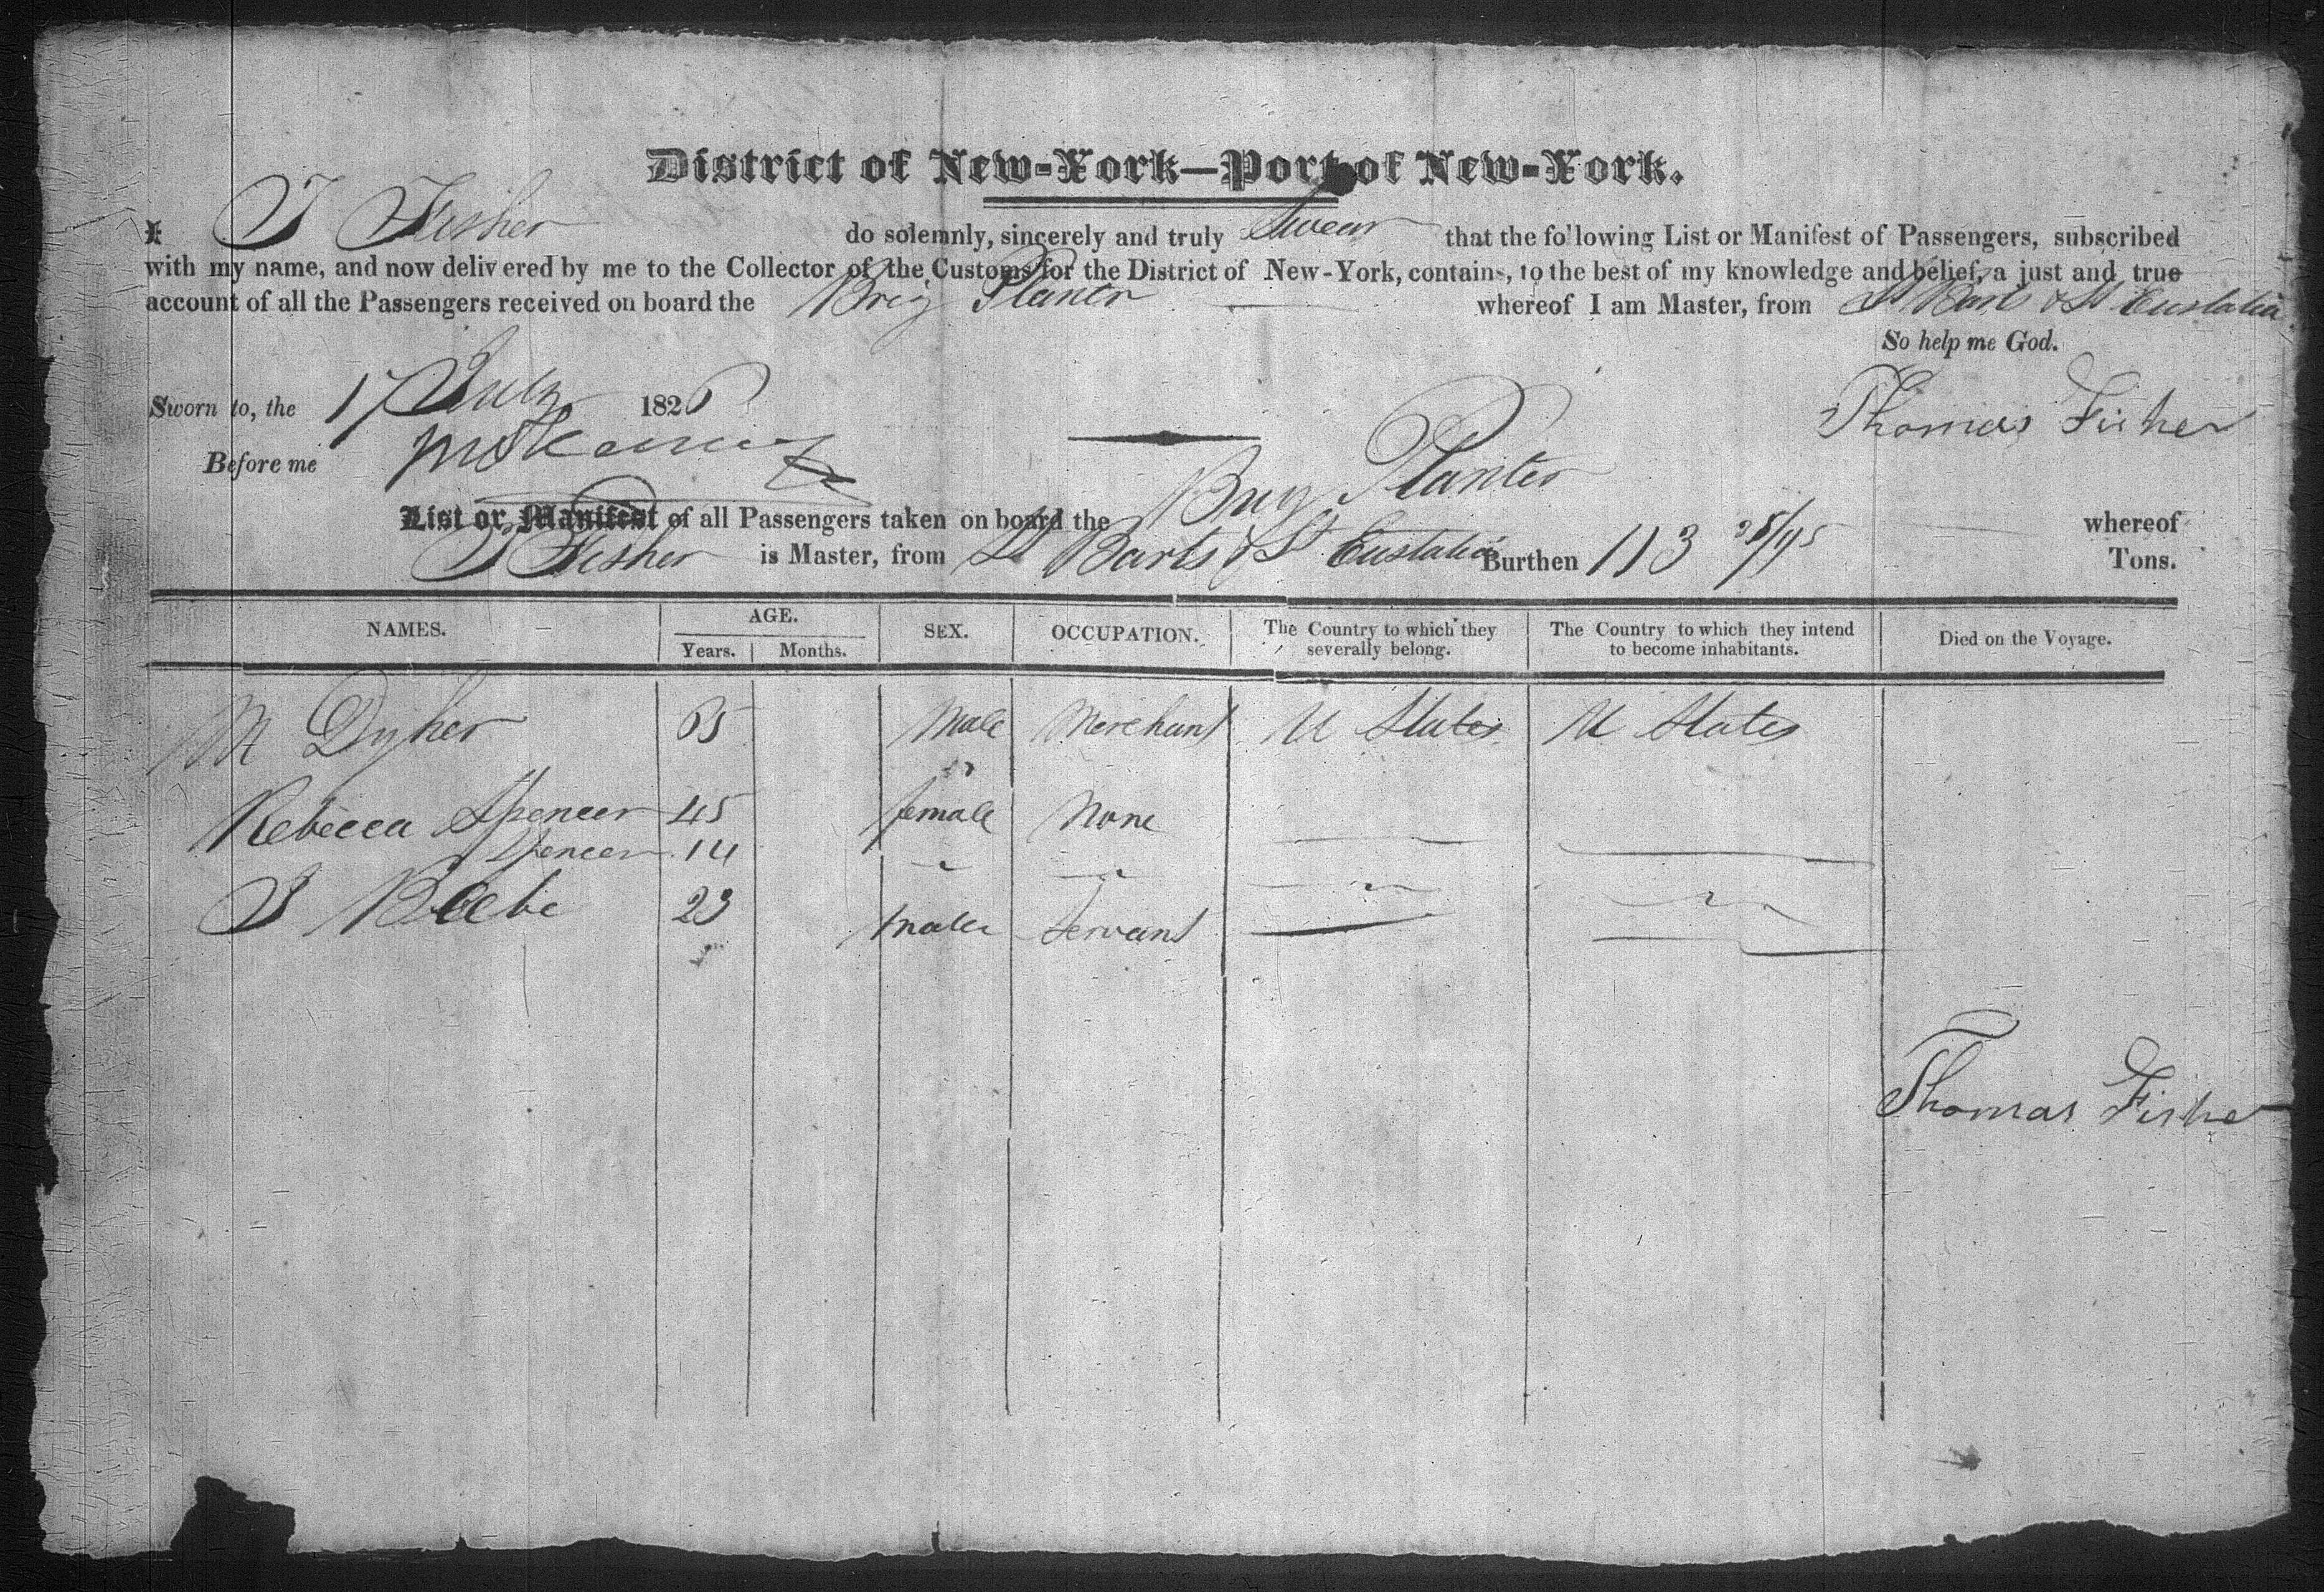 District of New-York—Port of New-York.
I T Fisher do solemnly, sincerely and truly Swear that the following List or Manifest of Passengers, subscribed
with my name, and now delivered by me to the Collector of the Customs for the District of New-York, contains, to the best of my knowledge and belief, a just and true
account of all the Passengers received on board the Brig Planter whereof I am Master, from St Barts & St Eustatia
So help me God.
Sworn to, the 17 July 1826 Thomas Fisher
Before me
List or Manifest of all Passengers taken on board the Brig Planter whereof
T Fisher is Master, from St Barts & St Eustatia Burthen 113 28/95 Tons.
NAMES. AGE. SEX. OCCUPATION. The Country to which they severally belong. The Country to which they intend to become inhabitants. Died on the Voyage.
Years. Months.
M Dyher 35 Male Merchant U States U States
Rebecca Spencer 45 female None
Spencer 14 "
J Beebe 23 male Servant
Thomas Fisher